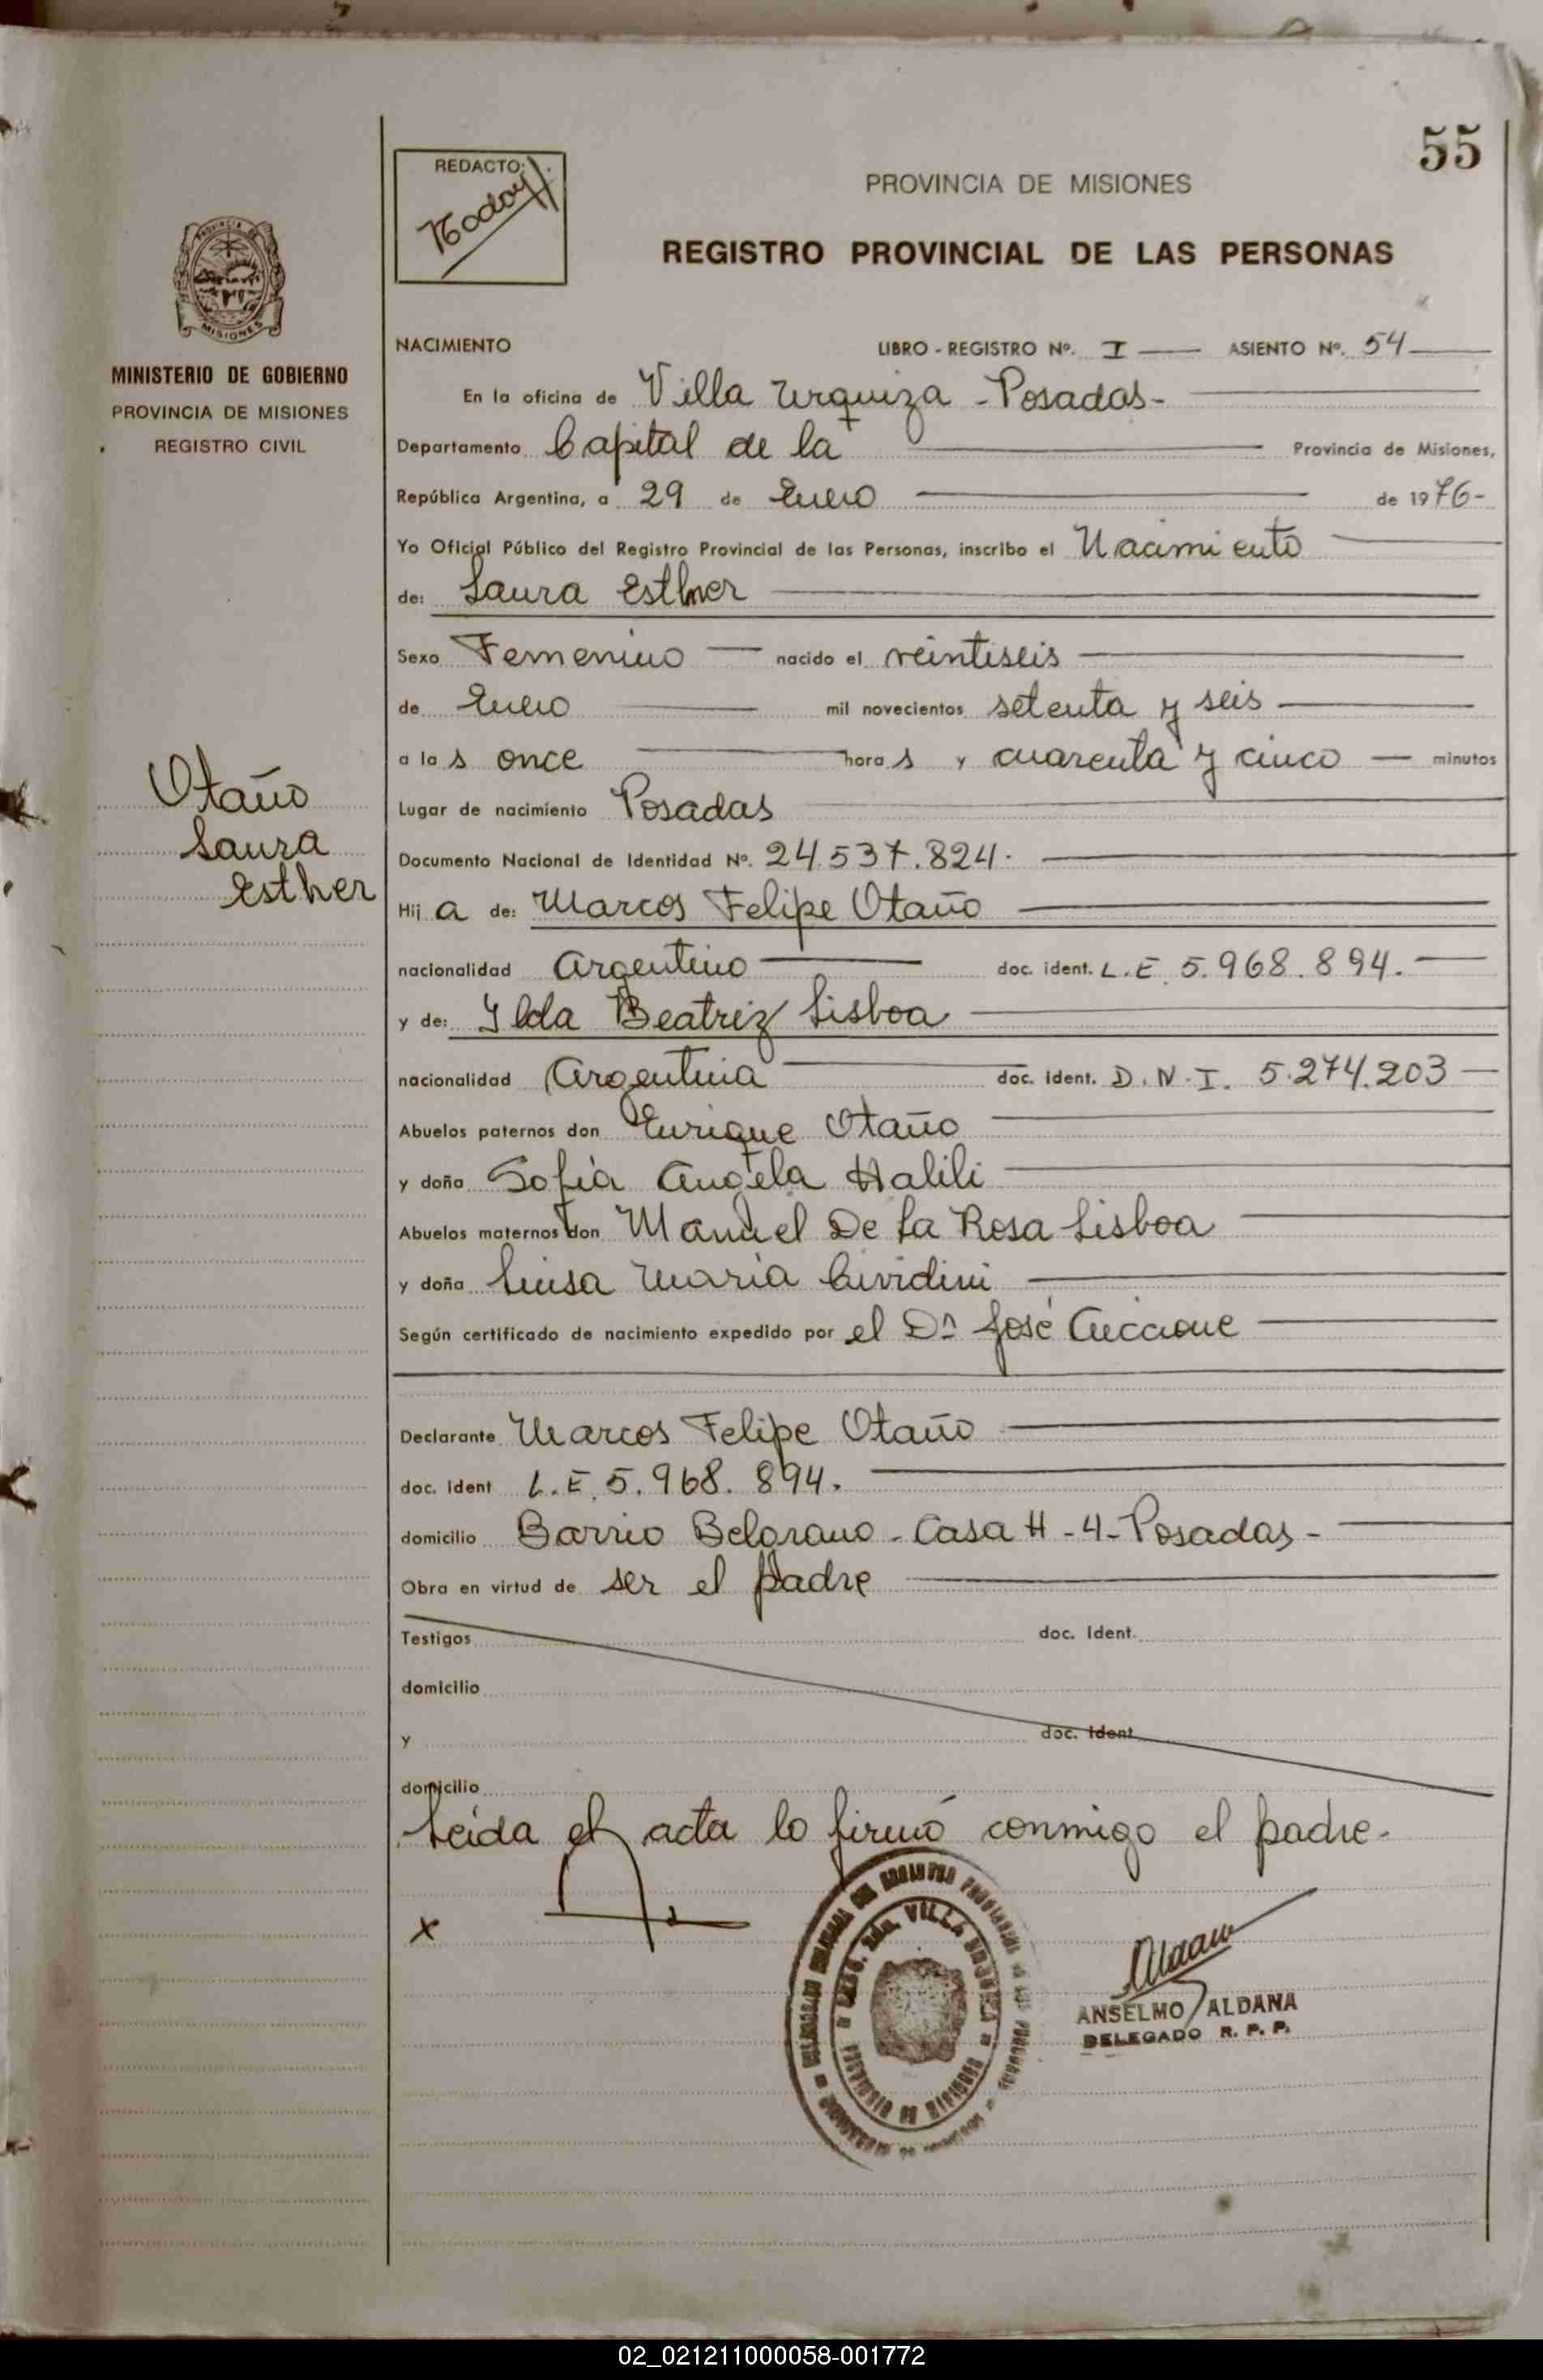 55
REDACTO:
PROVINCIA DE MISIONES
REGISTRO PROVINCIAL DE LAS PERSONAS
MISIONES
MINISTERIO DE GOBIERNO
PROVINCIA DE MISIONES
REGISTRO CIVIL
Otaño
Laura
Esther
NACIMIENTO LIBRO - REGISTRO Nº. I ASIENTO Nº. 54
En la oficina de Villa Urquiza - Posadas-
Departamento Capital de la Provincia de Misiones,
República Argentina, a 29 de Enero de 1976-
Yo Oficial Público del Registro Provincial de las Personas, inscribo el Nacimiento
de: Laura Esther
Sexo Femenino nacido el veintiseis
de Enero mil novecientos setenta y seis
a la s once hora s y cuarenta y cinco minutos
Lugar de nacimiento Posadas
Documento Nacional de Identidad Nº. 24.537.824.
Hij a de: Marcos Felipe Otaño
nacionalidad Argentino doc. ident. L.E. 5.968.894.
y de: Ylda Beatriz Lisboa
nacionalidad Argentina doc. Ident. D.N.I. 5.274.203
Abuelos paternos don Enrique Otaño
y doña Sofia Angela Halili
Abuelos maternos don Manuel De La Rosa Lisboa
y doña Luisa Maria Cividini
Según certificado de nacimiento expedido por el Dr José Ciccione
Declarante Marcos Felipe Otaño
doc. Ident L.E. 5.968.894.
domicilio Barrio Belgrano - Casa H - 4 - Posadas -
Obra en virtud de ser el padre
Testigos doc. Ident.
domicilio
y doc. Ident
domicilio
Leida el acta lo firmó conmigo el padre.
x
VILLA URQUIZA
PROVINCIA DE MISIONES
ANSELMO ALDANA
DELEGADO R. P. P.
02_021211000058-001772